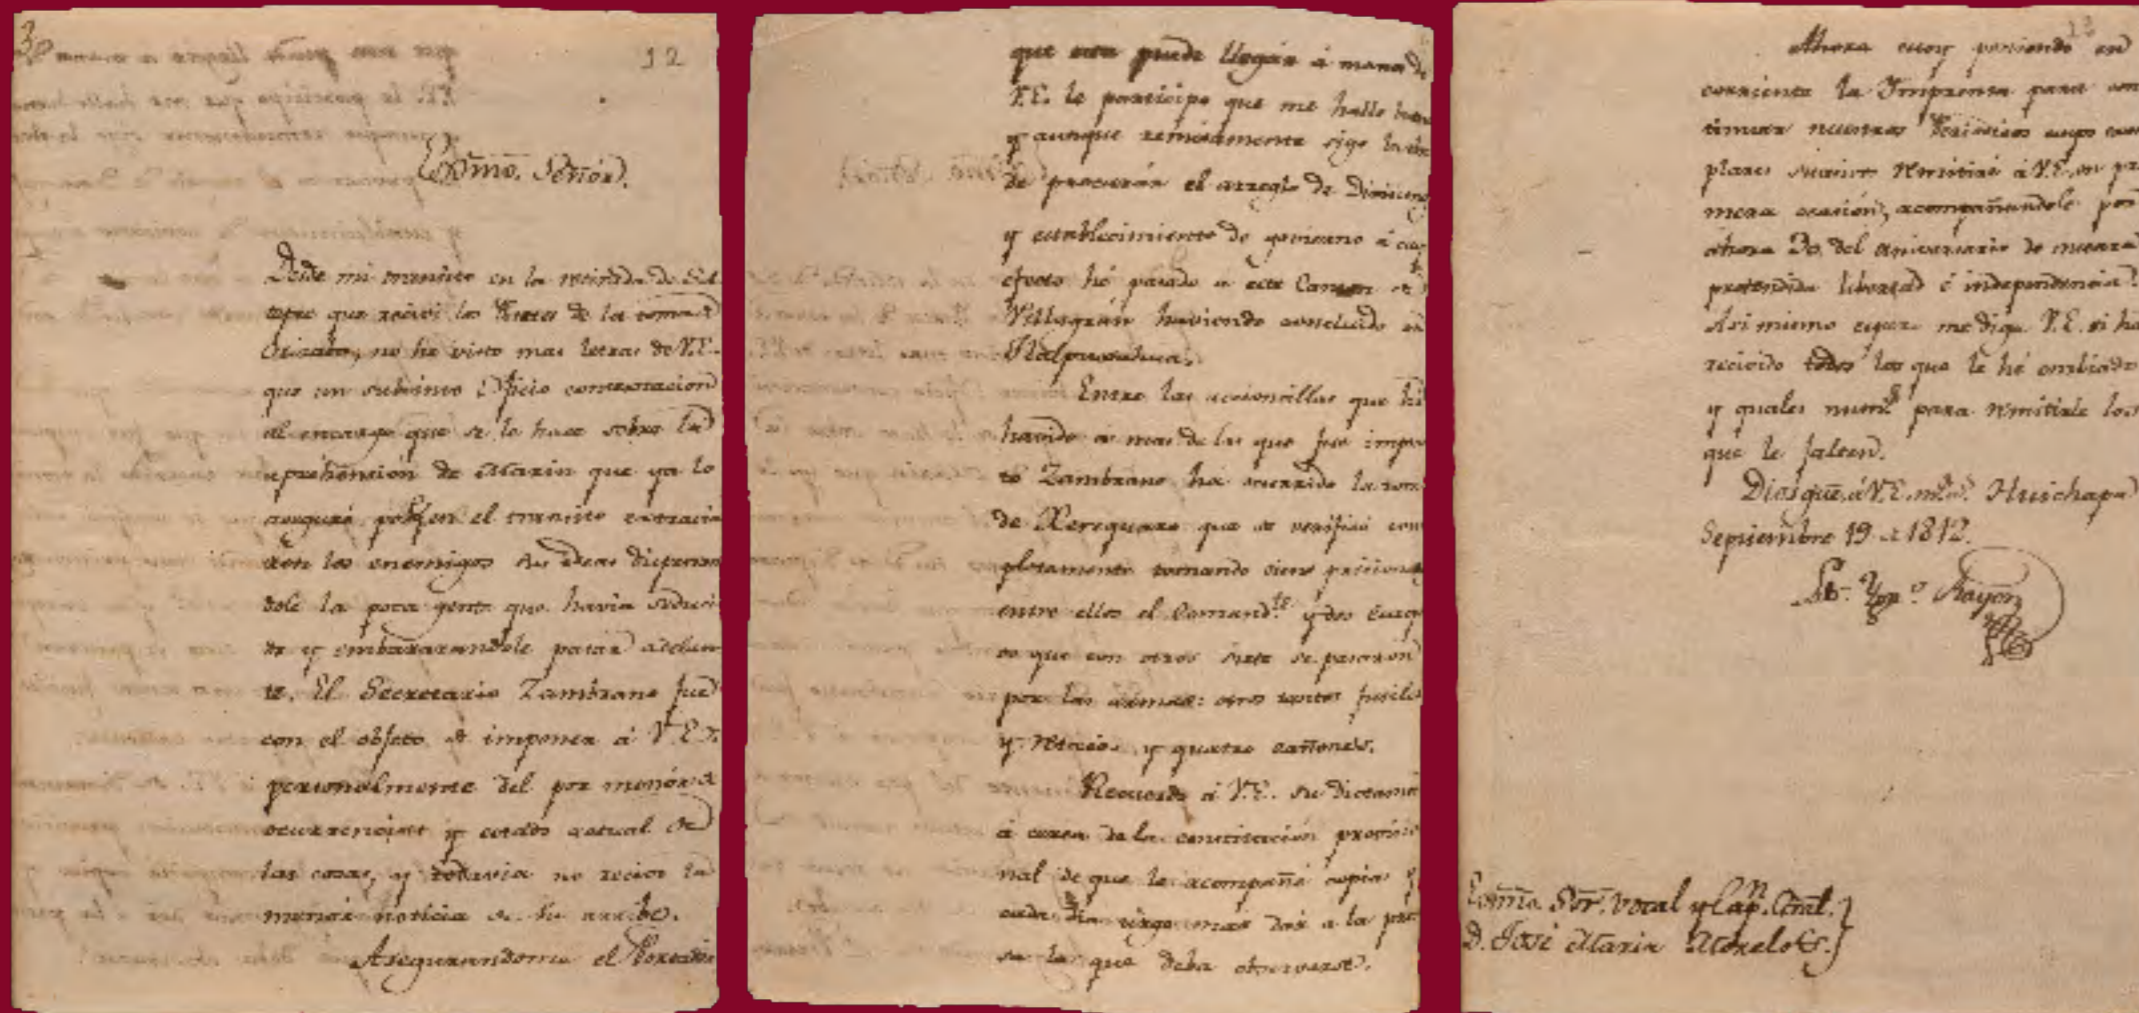 3
12
Exmo. Señor.
Desde mi transito en la retirada de Sul
tepec que recivi los Partes de la toma de
Orizaba, no he visto mas letras de V.E.
que un subsimo Oficio contextacion
al encargo que se le hace sobre la
aprehencion de Marin que ya lo
aseguré pr. en el transito
con los enemigos sus ideas dispersan
dole la poca gente que havia seduci
do y embarazandole pasar adelan
te. El Secretario Zambrano fue
con el objeto de imponer á V.E.
personalmente del por menor de
ocurrencias y estado actual de
las cosas, y todavia no recivo la
menor noticia de su arribo.
Asegurandome el Portador
que esta puede llegar á manos de
V.E. le participo que me hallo bueno
y aunque remisamente sigo la
de procurár el arreglo de Divisiones
y establecimiento de govierno á cuyo
efecto hé pasado a este Canton de
Villagrán haviendo concluido en
Tlalpuxahua.
Entre las accioncillas que há
havido á mas de las que fue impues
to Zambrano há ocurrido la toma
de Xerequaro que se verificó com
pletamente tomando cien pricioneros
entre ellos el Comandte. y dos Europe
os que con otros siete se pasaron
por las armas: otros tantos fusiles
y retacos, y quatro cañones.
Recuerdo á V.E. su dictamen
á cerca de la constitución provicio
nal de que le acompañé copia y
cada dia urge mas dar a la pren
sa la que deba observarse.
13
Ahora estoy poniendo en
corriente la Imprenta para con
tinuar nuestros Periodicos cuyos exem
plares succivos remitiré á V.E. en pri
mera ocasión, acompañandole por
ahora 20 del aniversario de nuestra
pretendida libertad é independencia.
Asi mismo espero me diga V.E. si ha
recivido todos los que le hé embiado
y quales nums. para remitirle los
que le falten.
Dios gue. á V.E. ms. as. Huichapa
Septiembre 19 de 1812.
Lic. Ygno. Rayon
Exmo. Sor. vocal y Cap. Gral.
D. José Maria Morelos.